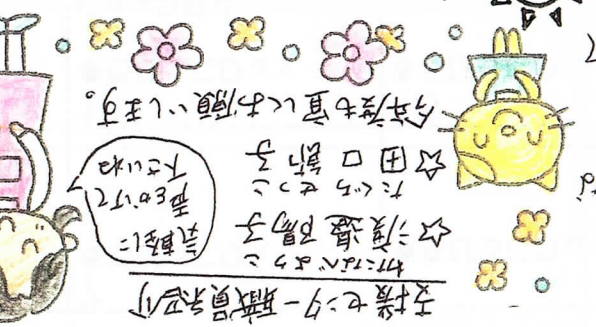 支援センター職員紹介
わたなべ ようこ
☆渡邉陽子
たぐち せつこ
☆田口節子
今年度も宜しくお願いします。
気軽に
声をかけて
下さいね